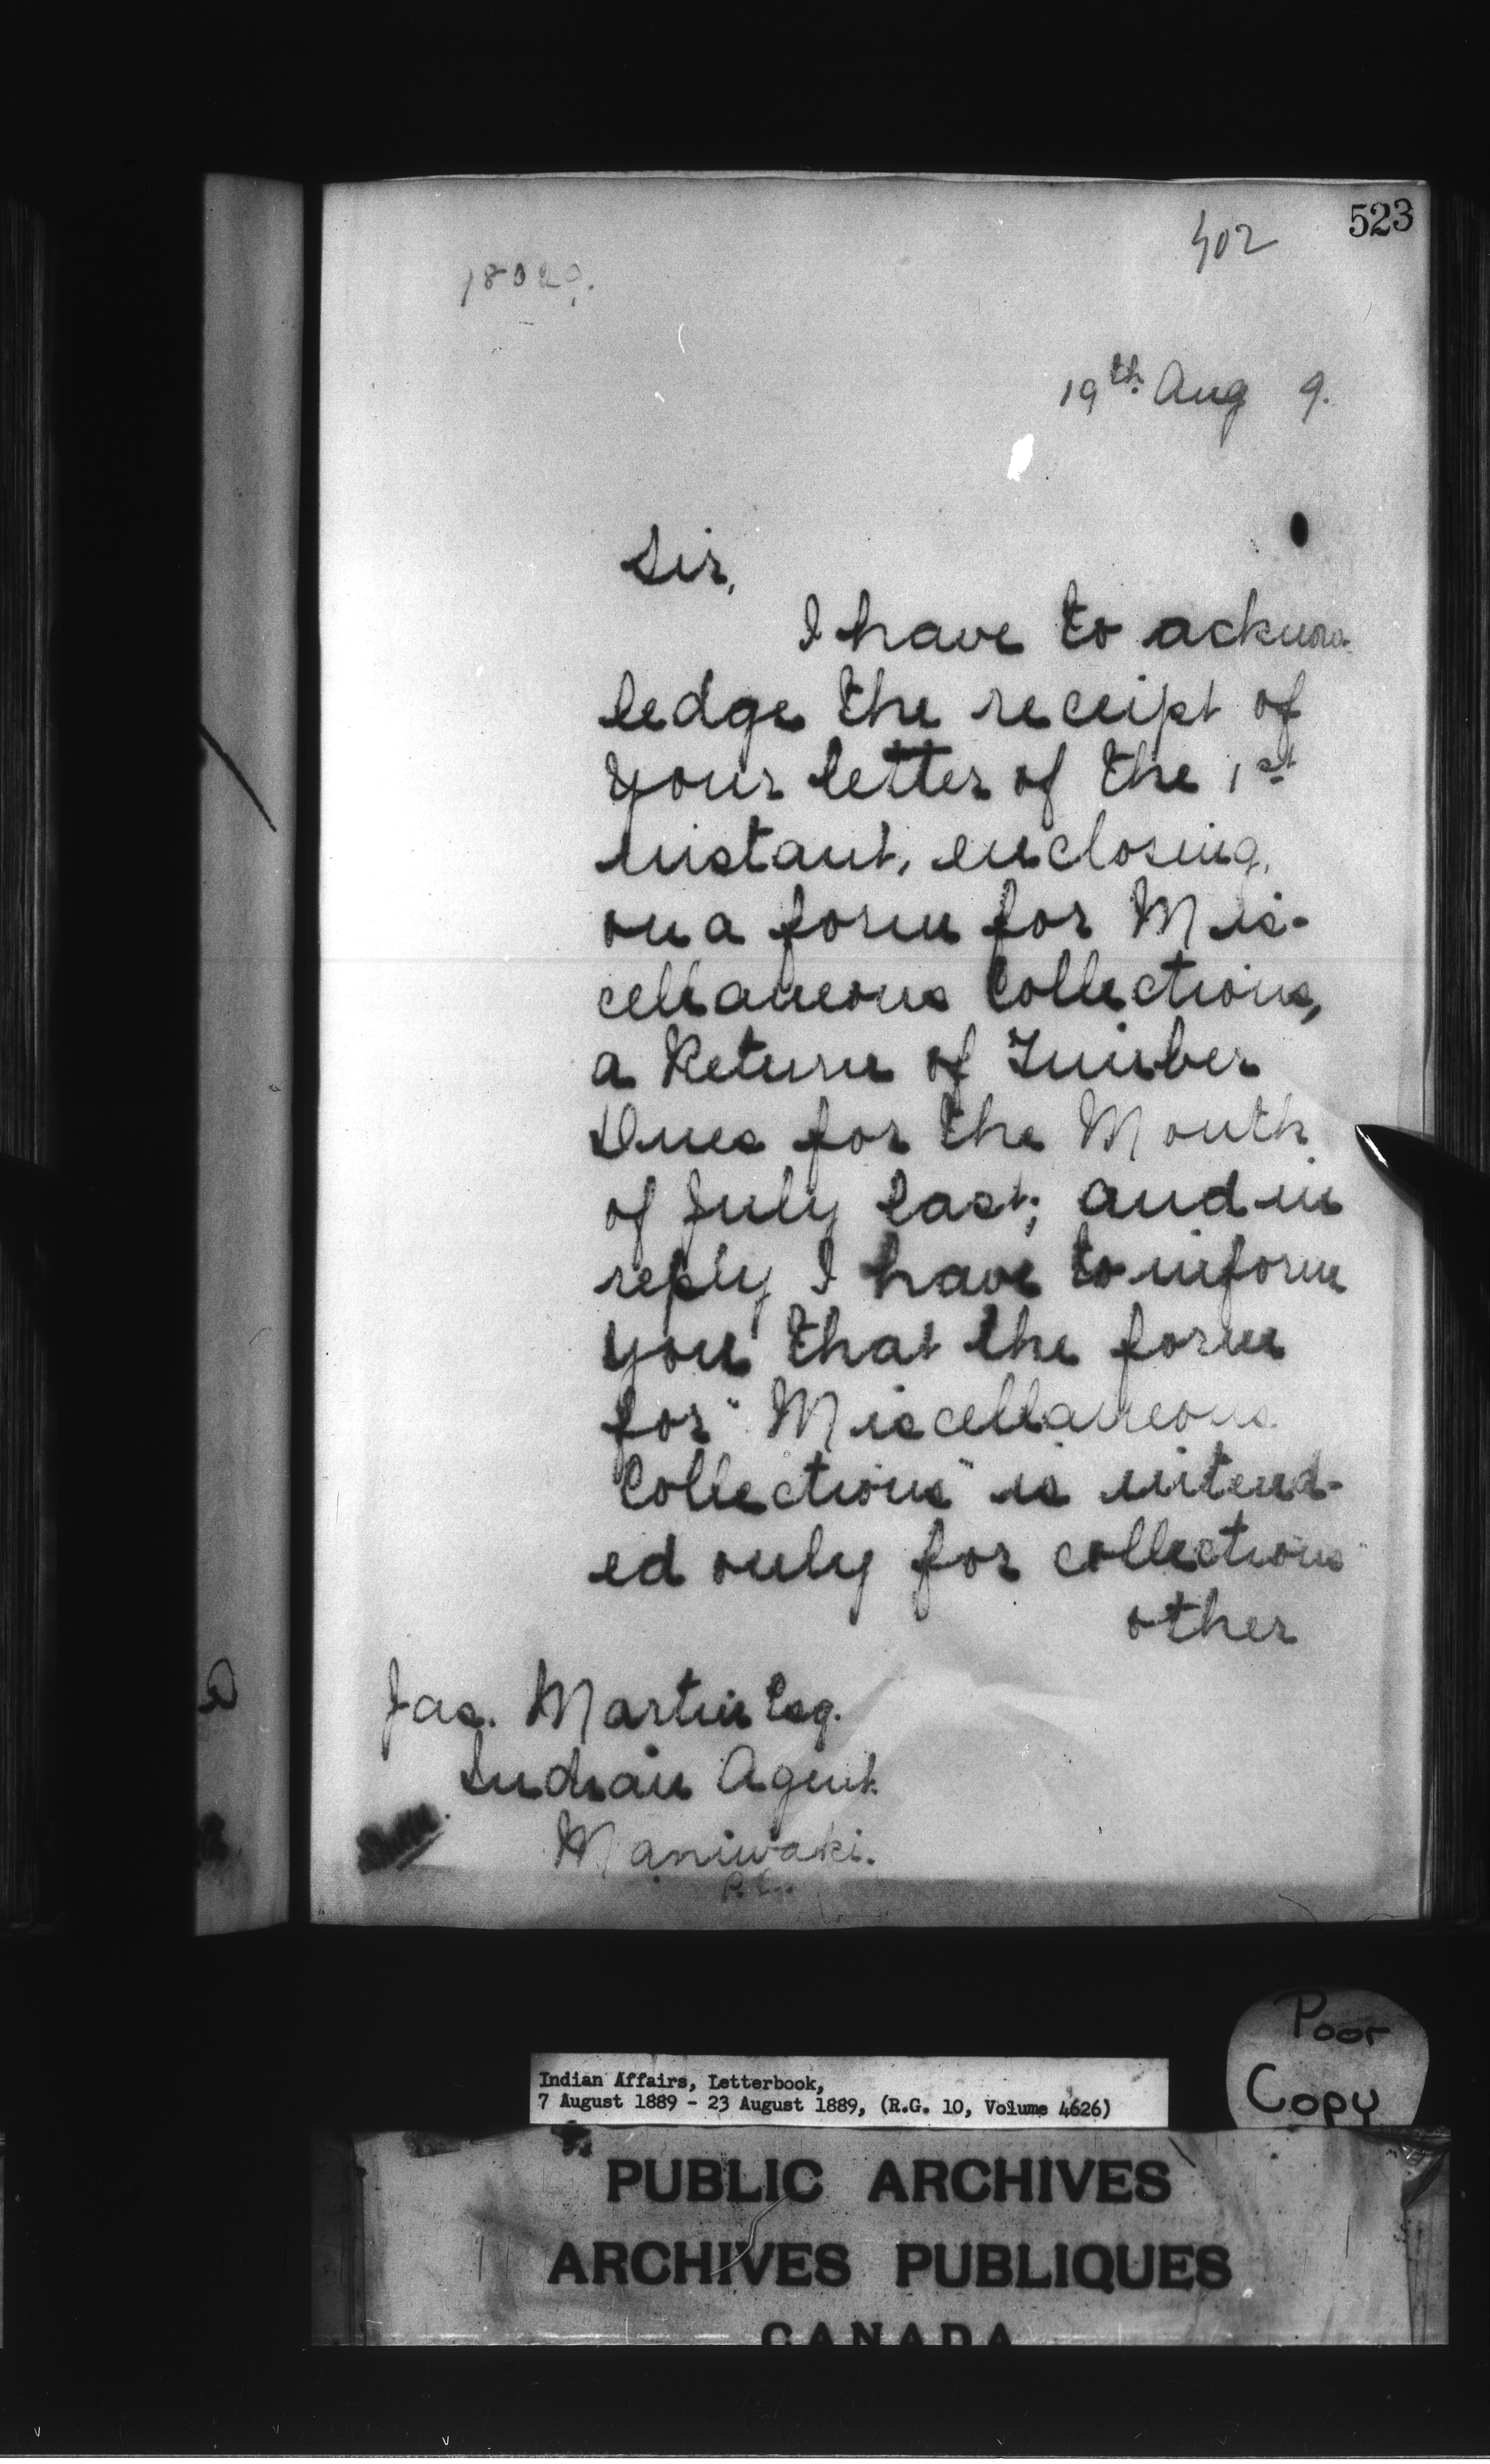 523
402
18029.
19th Aug 9.
Sir,
I have to acknow-
ledge the receipt of
your letter of the 1st
instant, enclosing,
on a form for Mis-
cellaneous Collections,
a Return of Timber
Dues for the Month
of July last; and in
reply I have to inform
you that the form
for "Miscellaneous
Collections" is intend-
ed only for collections
other
Jas. Martin Esq.
Indian Agent
Maniwaki.
P.Q.
Poor
Copy
Indian Affairs, Letterbook,
7 August 1889 - 23 August 1889, (R.G. 10, Volume 4626)
PUBLIC ARCHIVES
ARCHIVES PUBLIQUES
CANADA